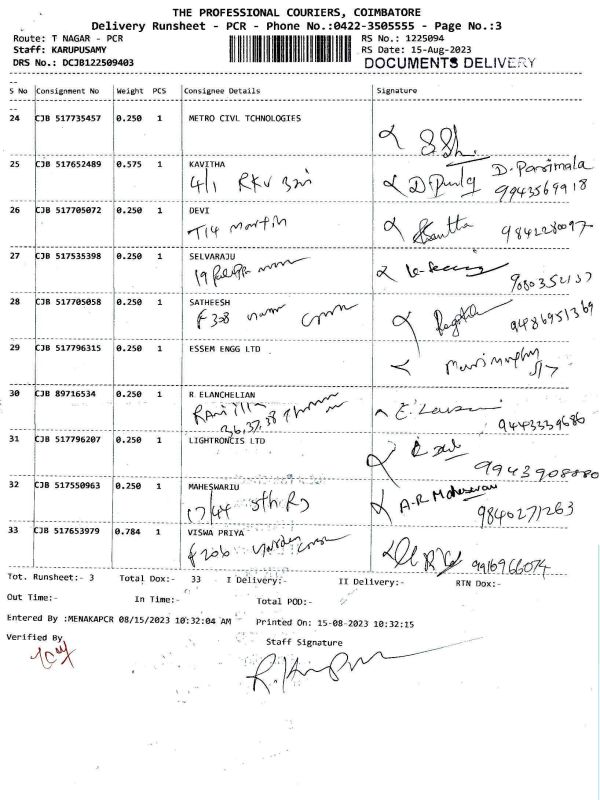 THE PROFESSIONAL COURIERS, COIMBATORE
Delivery Runsheet - PCR - Phone No.:0422-3505555 - Page No.:3
Route: T NAGAR - PCR RS No.: 1225094
Staff: KARUPUSAMY RS Date: 15-Aug-2023
DRS No.: DCJB122509403 DOCUMENTS DELIVERY
S No Consignment No Weight PCS Consignee Details Signature
24 CJB 517735457 0.250 1 METRO CIVL TCHNOLOGIES
25 CJB 517652489 0.575 1 KAVITHA D. Parimala
4/1 RKV 9943569918
26 CJB 517705072 0.250 1 DEVI
T14 9842280097
27 CJB 517535398 0.250 1 SELVARAJU
19
28 CJB 517705058 0.250 1 SATHEESH
F 308 9486951369
29 CJB 517796315 0.250 1 ESSEM ENGG LTD
30 CJB 89716534 0.250 1 R ELANCHELIAN
36,37,38 9443339686
31 CJB 517796207 0.250 1 LIGHTRONCIS LTD
9943908080
32 CJB 517550963 0.250 1 MAHESWARIU A.R Maheswari
17/44 5th Rd 9840271263
33 CJB 517653979 0.784 1 VISWA PRIYA
F 206 9916966074
Tot. Runsheet:- 3 Total Dox:- 33 I Delivery:- II Delivery:- RTN Dox:-
Out Time:- In Time:- Total POD:-
Entered By :MENAKAPCR 08/15/2023 10:32:04 AM Printed On: 15-08-2023 10:32:15
Verified By Staff Signature